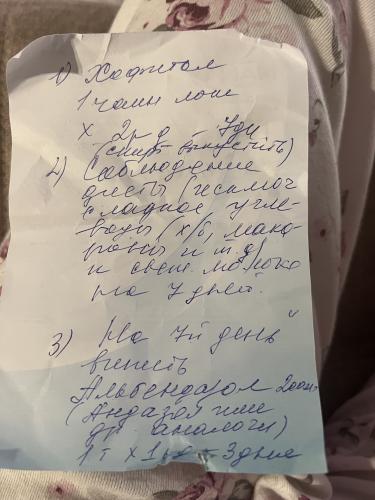 1) Хофитол
1 чайн лож
х 2р д – 7дн
(спирт выпустить)
2) Соблюдение
диеты (исключ
сладкое, угле-
воды (х/б, мака-
роны и т.д)
и свеж. молоко
на 7 дней.
3) На 7й день
выпить
Альбендазол 200мг
(Андазол или
др. аналоги)
1т х 1р д – 3дня